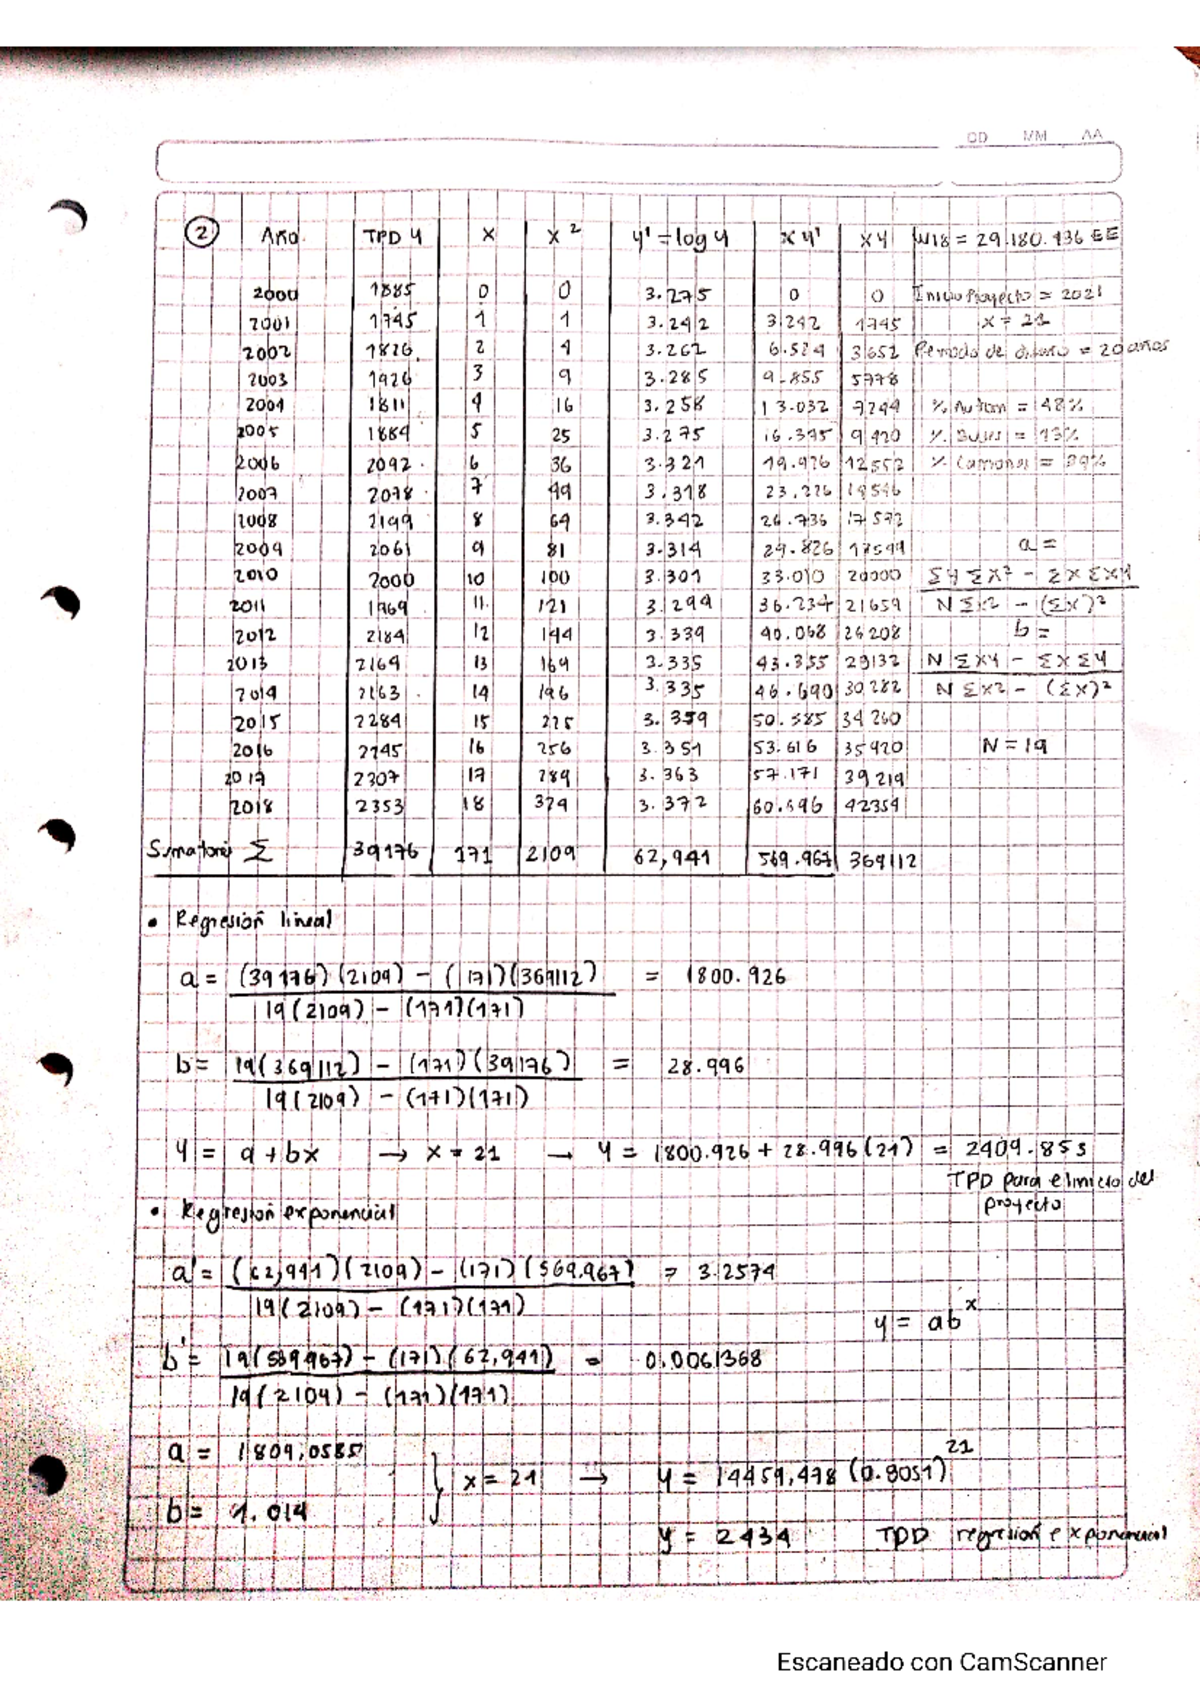 DD MM AA
2 Año TPD y x x² y' = log y x y' x y W18 = 29.180.436 EE
2000 1885 0 0 3.275 0 0 Inicio Proyecto = 2021
2001 1745 1 1 3.242 3.242 1745 x = 21
2002 1826 2 4 3.262 6.524 3652 Periodo de diseño = 20 años
2003 1926 3 9 3.285 9.855 5778
2004 1811 4 16 3.258 13.032 7244 % Autom = 48%
2005 1884 5 25 3.275 16.375 9420 % Buses = 13%
2006 2092 6 36 3.321 19.926 12552 % Camiones = 39%
2007 2078 7 49 3.318 23.226 14546
2008 2199 8 64 3.342 26.736 17592
2009 2061 9 81 3.314 29.826 18549 a =
2010 2000 10 100 3.301 33.010 20000 Σy Σx² - Σx Σxy
2011 1969 11 121 3.294 36.234 21659 N Σx2 - (Σx)²
2012 2184 12 144 3.339 40.068 26208 b =
2013 2164 13 169 3.335 43.355 28132 N Σxy - Σx Σy
2014 2163 14 196 3.335 46.690 30.282 N Σx2 - (Σx)²
2015 2284 15 225 3.359 50.385 34260
2016 2245 16 256 3.351 53.616 35920 N = 19
2017 2307 17 289 3.363 57.171 39219
2018 2353 18 324 3.372 60.696 42354
Sumatoria Σ 39176 171 2109 62,941 569.967 369112
• Regresión lineal
a = (39176)(2109) - (171)(369112) = 1800.926
19(2109) - (171)(171)
b = 19(369112) - (171)(39176) = 28.996
19(2109) - (171)(171)
y = a + bx → x = 21 → y = 1800.926 + 28.996(21) = 2409.853
TPD para el inicio del
proyecto
• Regresion exponencial
a' = (62,941)(2109) - (171)(569.967) = 3.2574
19(2109) - (171)(171)
y = ab^x
b' = 19(569.967) - (171)(62,941) = 0.0061368
19(2109) - (171)(171)
a = 1809,0585
x = 21 → y = 14459,478 (0.8051)^21
b = 1.014
y = 2434 TPD regresion exponencial
Escaneado con CamScanner